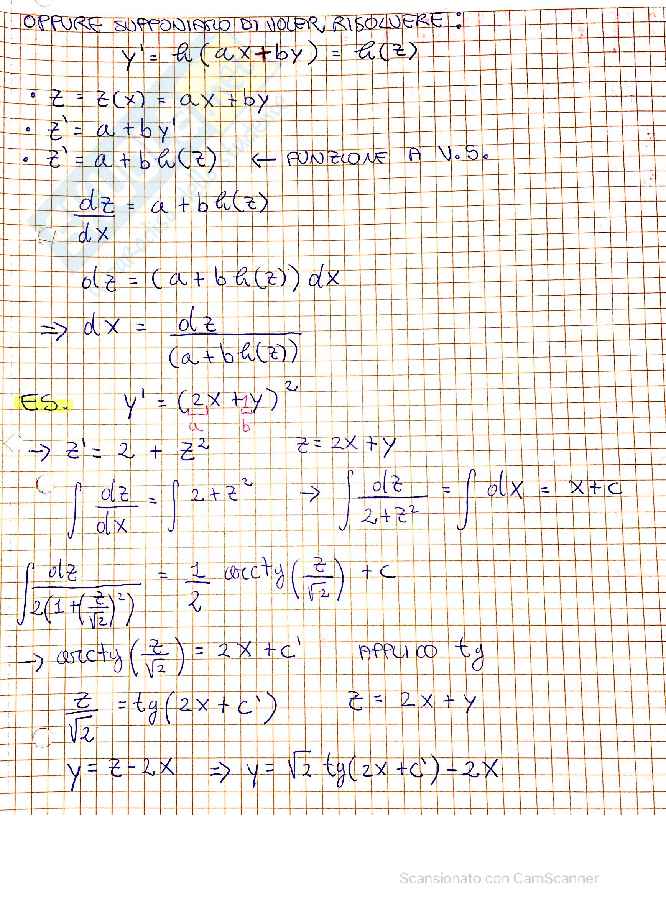 OPPURE SUPPONIAMO DI VOLER RISOLVERE:
y' = h(ax+by) = h(z)
• z = z(x) = ax + by
• z' = a + by'
• z' = a + bh(z) ← FUNZIONE A V.S.
dz/dx = a + bh(z)
dz = (a + bh(z)) dx
⇒ dx = dz/(a + bh(z))
ES. y' = (2x + 1y)²
a b
→ z' = 2 + z² z = 2x + y
∫ dz/dx = ∫ 2 + z² → ∫ dz/(2+z²) = ∫ dx = x + c
∫ dz/(2(1+(z/√2)²)) = 1/2 arcty(z/√2) + c
→ arcty(z/√2) = 2x + c' APPLICO ty
z/√2 = tg(2x + c') z = 2x + y
y = z - 2x ⇒ y = √2 tg(2x + c') - 2x
Scansionato con CamScanner